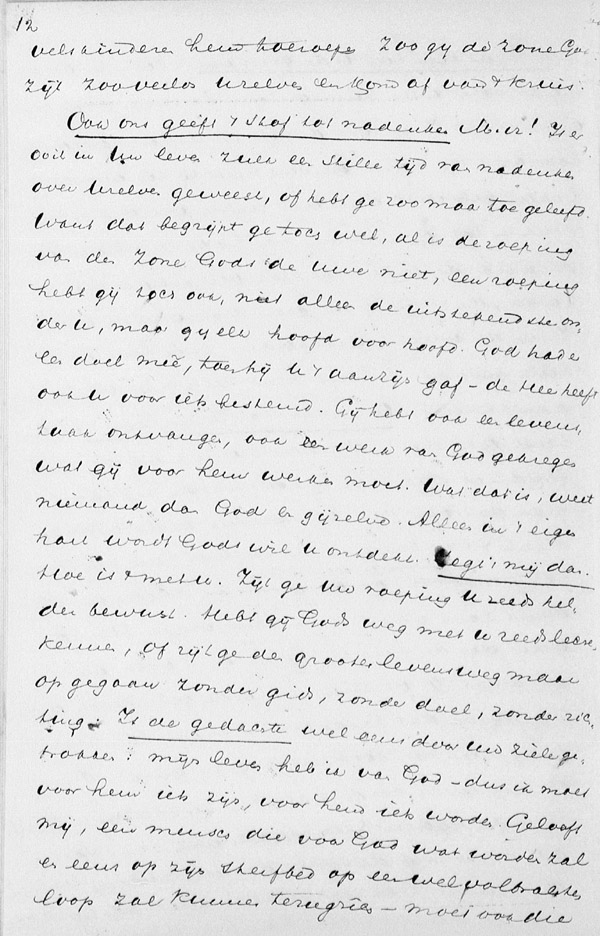 12
volkskinderen hem toeroepen zoo gij de Zone Go
zijt zoo verlos Uzelven en kom af van 't kruis.
Ook ons geeft 't stof tot nadenken M. v.! Is er
ooit in Uw leven zulk een stille tijd van nadenken
over Uzelven geweest, of hebt ge zoo maar toe geleefd.
Want dat begrijpt ge toch wel, al is de roeping
van den Zone Gods de uwe niet, een roeping
hebt gij toch ook, niet alleen de uitstekendste on-
der u, maar gij elk hoofd voor hoofd. God had e
een doel meê, toen hij U 't aanzijn gaf – de Heer heeft
ook U voor iets bestemd. Gij hebt ook een levens
taak ontvangen, ook een werk van God gekregen
wat gij voor hem werken moet. Wat dat is, weet
niemand dan God en gijzelve. Alleen in 't eigen
hart wordt Gods wil U ontdekt. Zegt mij dan.
Hoe is 't met U. Zijt ge Uw roeping U reeds hel-
der bewust. Hebt gij Gods weg met U reeds leeren
kennen, of zijt ge den grooten levensweg maar
op gegaan zonder gids, zonder doel, zonder rich-
ting. Is de gedachte wel eens door Uw ziele ge-
trokken: mijn leven heb ik van God – dus ik moet
voor hem iets zijn, voor hem iets worden. Gelooft
mij, een mensch die voor God wat worden zal
en eens op zijn sterfbed op een wel volbrachten
loop zal kunnen terugzien – moet ook die